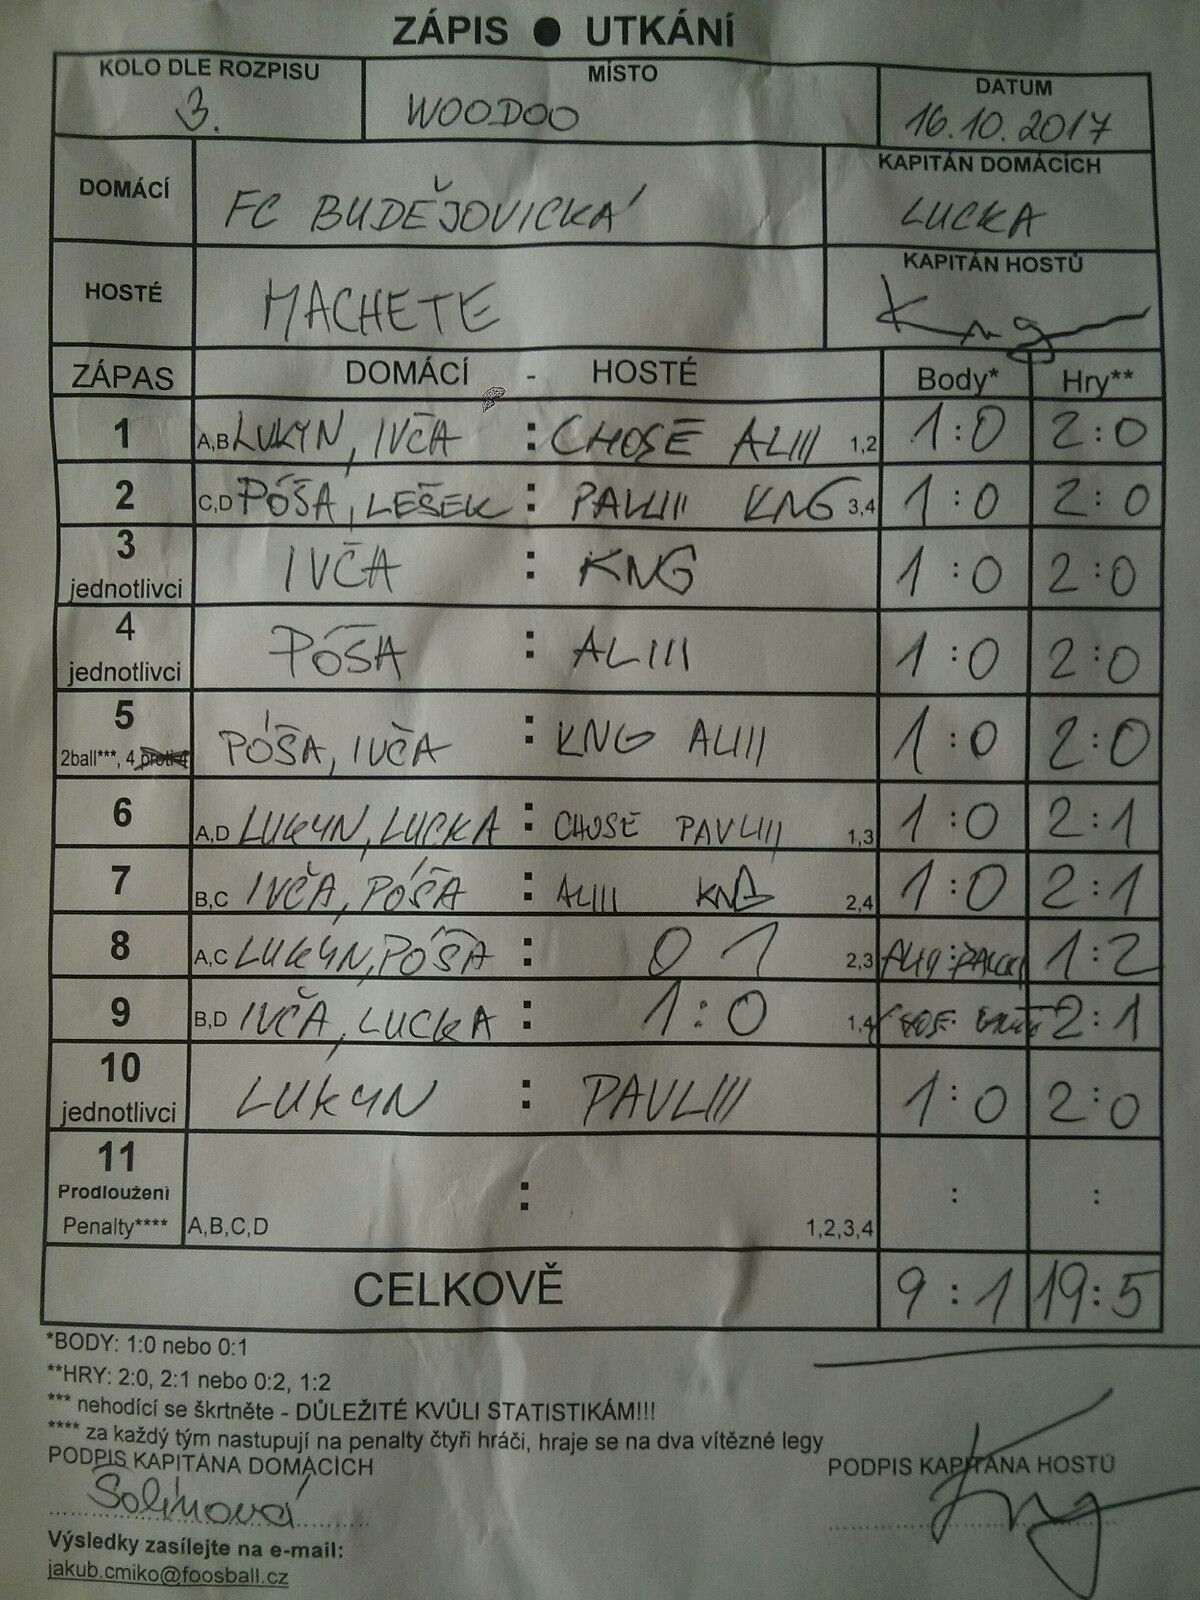 ZÁPIS ● UTKÁNÍ
KOLO DLE ROZPISU MÍSTO DATUM
3. WOODOO 16.10.2017
DOMÁCÍ FC BUDĚJOVICKÁ KAPITÁN DOMÁCÍCH
LUCKA
HOSTÉ MACHETE KAPITÁN HOSTŮ
Kng
ZÁPAS DOMÁCÍ - HOSTÉ Body* Hry**
1 A,B LUKYN, IVČA : CHOSE ALIII 1,2 1:0 2:0
2 C,D PÓŠA, LEŠEK : PAVLIII KNG 3,4 1:0 2:0
3 jednotlivci IVČA : KNG 1:0 2:0
4 jednotlivci PÓŠA : ALIII 1:0 2:0
5 2ball***, 4 proti 4 PÓŠA, IVČA : KNG ALIII 1:0 2:0
6 A,D LUKYN, LUCKA : CHOSE PAVLIII 1,3 1:0 2:1
7 B,C IVČA, PÓŠA : ALIII KNG 2,4 1:0 2:1
8 A,C LUKYN, PÓŠA : 0 1 2,3 : 1:2
9 B,D IVČA, LUCKA : 1:0 1,4 : 2:1
10 jednotlivci LUKYN : PAVLIII 1:0 2:0
11
Prodloužení : : :
Penalty**** A,B,C,D 1,2,3,4
CELKOVĚ 9:1 19:5
*BODY: 1:0 nebo 0:1
**HRY: 2:0, 2:1 nebo 0:2, 1:2
*** nehodící se škrtněte - DŮLEŽITÉ KVŮLI STATISTIKÁM!!!
**** za každý tým nastupují na penalty čtyři hráči, hraje se na dva vítězné legy
PODPIS KAPITÁNA DOMÁCÍCH PODPIS KAPITÁNA HOSTŮ
Šolínová Kng
Výsledky zasílejte na e-mail:
jakub.cmiko@foosball.cz